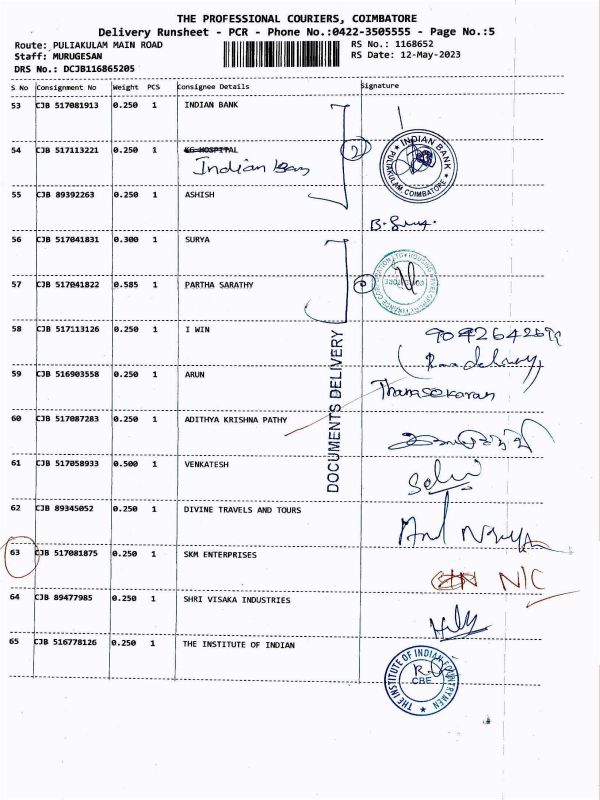 THE PROFESSIONAL COURIERS, COIMBATORE
Delivery Runsheet - PCR - Phone No.:0422-3505555 - Page No.:5
Route: PULIAKULAM MAIN ROAD
RS No.: 1168652
Staff: MURUGESAN
RS Date: 12-May-2023
DRS No.: DCJB116865205
S No Consignment No Weight PCS Consignee Details Signature
53 CJB 517081913 0.250 1 INDIAN BANK
54 CJB 517113221 0.250 1 KG HOSPITAL
Indian Bank
2
INDIAN BANK
PULIAKULAM, COIMBATORE
55 CJB 89392263 0.250 1 ASHISH
56 CJB 517041831 0.300 1 SURYA
57 CJB 517041822 0.585 1 PARTHA SARATHY
58 CJB 517113126 0.250 1 I WIN
59 CJB 516903558 0.250 1 ARUN
60 CJB 517087283 0.250 1 ADITHYA KRISHNA PATHY
DOCUMENTS DELIVERY
61 CJB 517058933 0.500 1 VENKATESH
Selvi
62 CJB 89345052 0.250 1 DIVINE TRAVELS AND TOURS
63 CJB 517081875 0.250 1 SKM ENTERPRISES
N/C
64 CJB 89477985 0.250 1 SHRI VISAKA INDUSTRIES
65 CJB 516778126 0.250 1 THE INSTITUTE OF INDIAN
THE INSTITUTE OF INDIAN FOUNTRYMEN
CBE